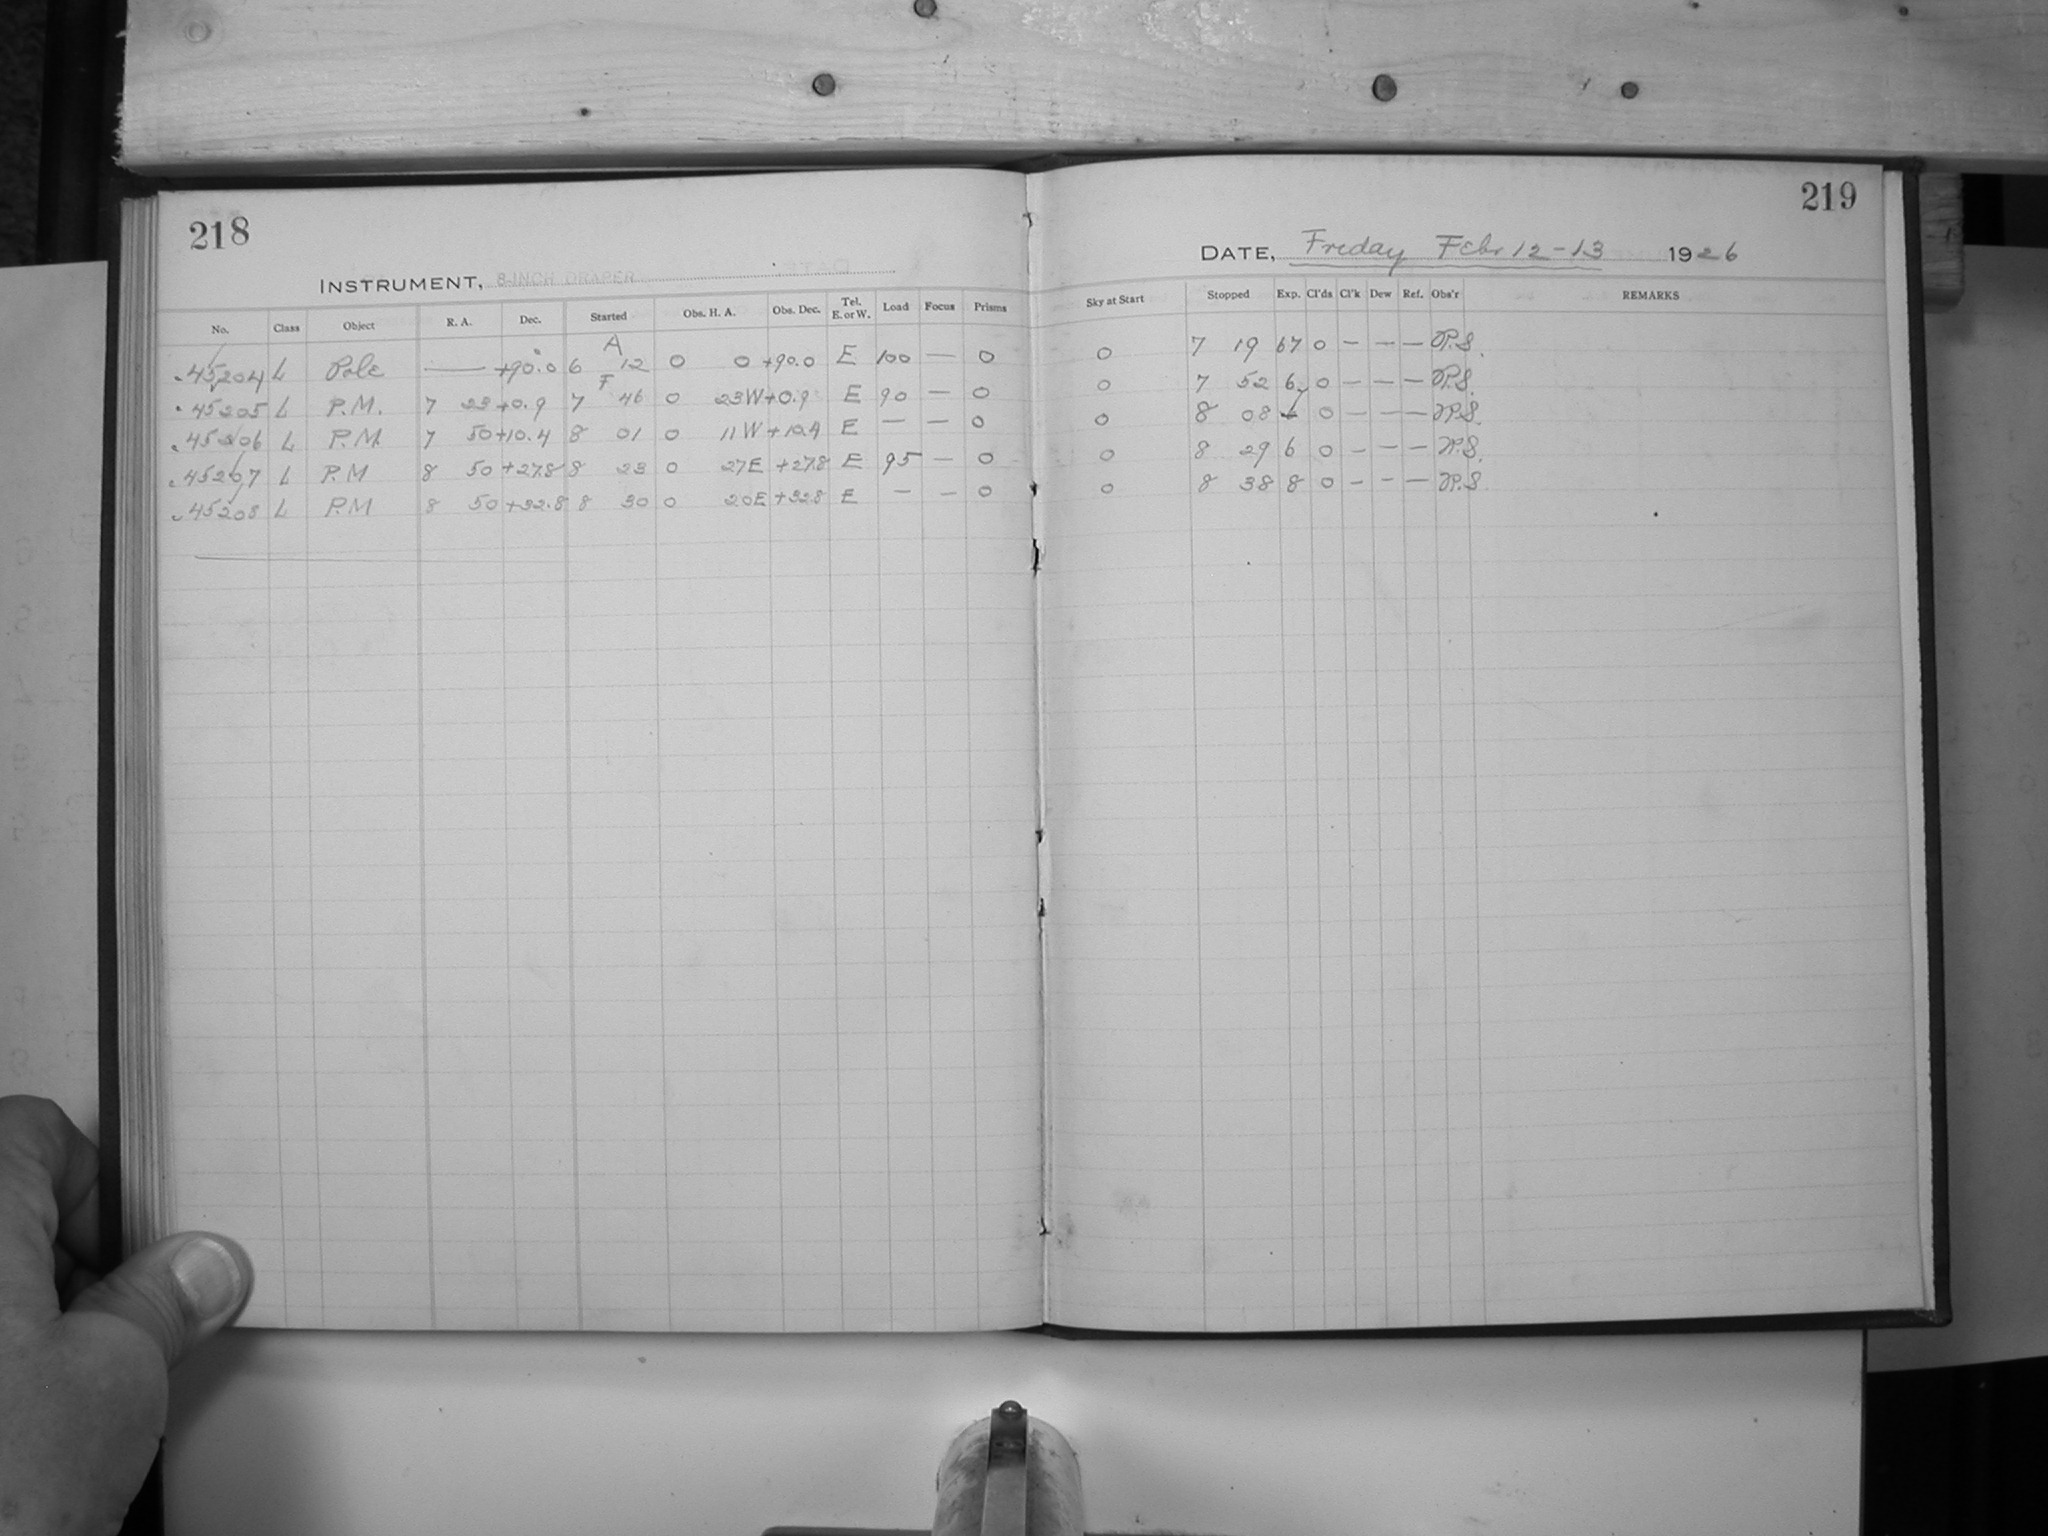 218
INSTRUMENT, 8-INCH DRAPER
No. Class Object R. A. Dec. Started Obs. H. A. Obs. Dec. Tel. E. or W. Load Focus Prisms
A
45204 L Pole — +90.0 6 12 0 0 +90.0 E 100 — 0
F
45205 L P.M. 7 23 +0.9 7 46 0 23W +0.9 E 90 — 0
45206 L P.M. 7 50 +10.4 8 01 0 11W +10.4 E — — 0
45207 L P.M 8 50 +27.8 8 23 0 27E +27.8 E 95 — 0
45208 L P.M 8 50 +32.8 8 30 0 20E +32.8 E — — 0
219
DATE, Freday Febr 12-13 1926
Sky at Start Stopped Exp. Cl'ds Cl'k Dew Ref. Obs'r REMARKS
0 7 19 67 0 — — —
0 7 52 6 0 — — —
0 8 08 7 0 — — —
0 8 29 6 0 — — —
0 8 38 8 0 — — —